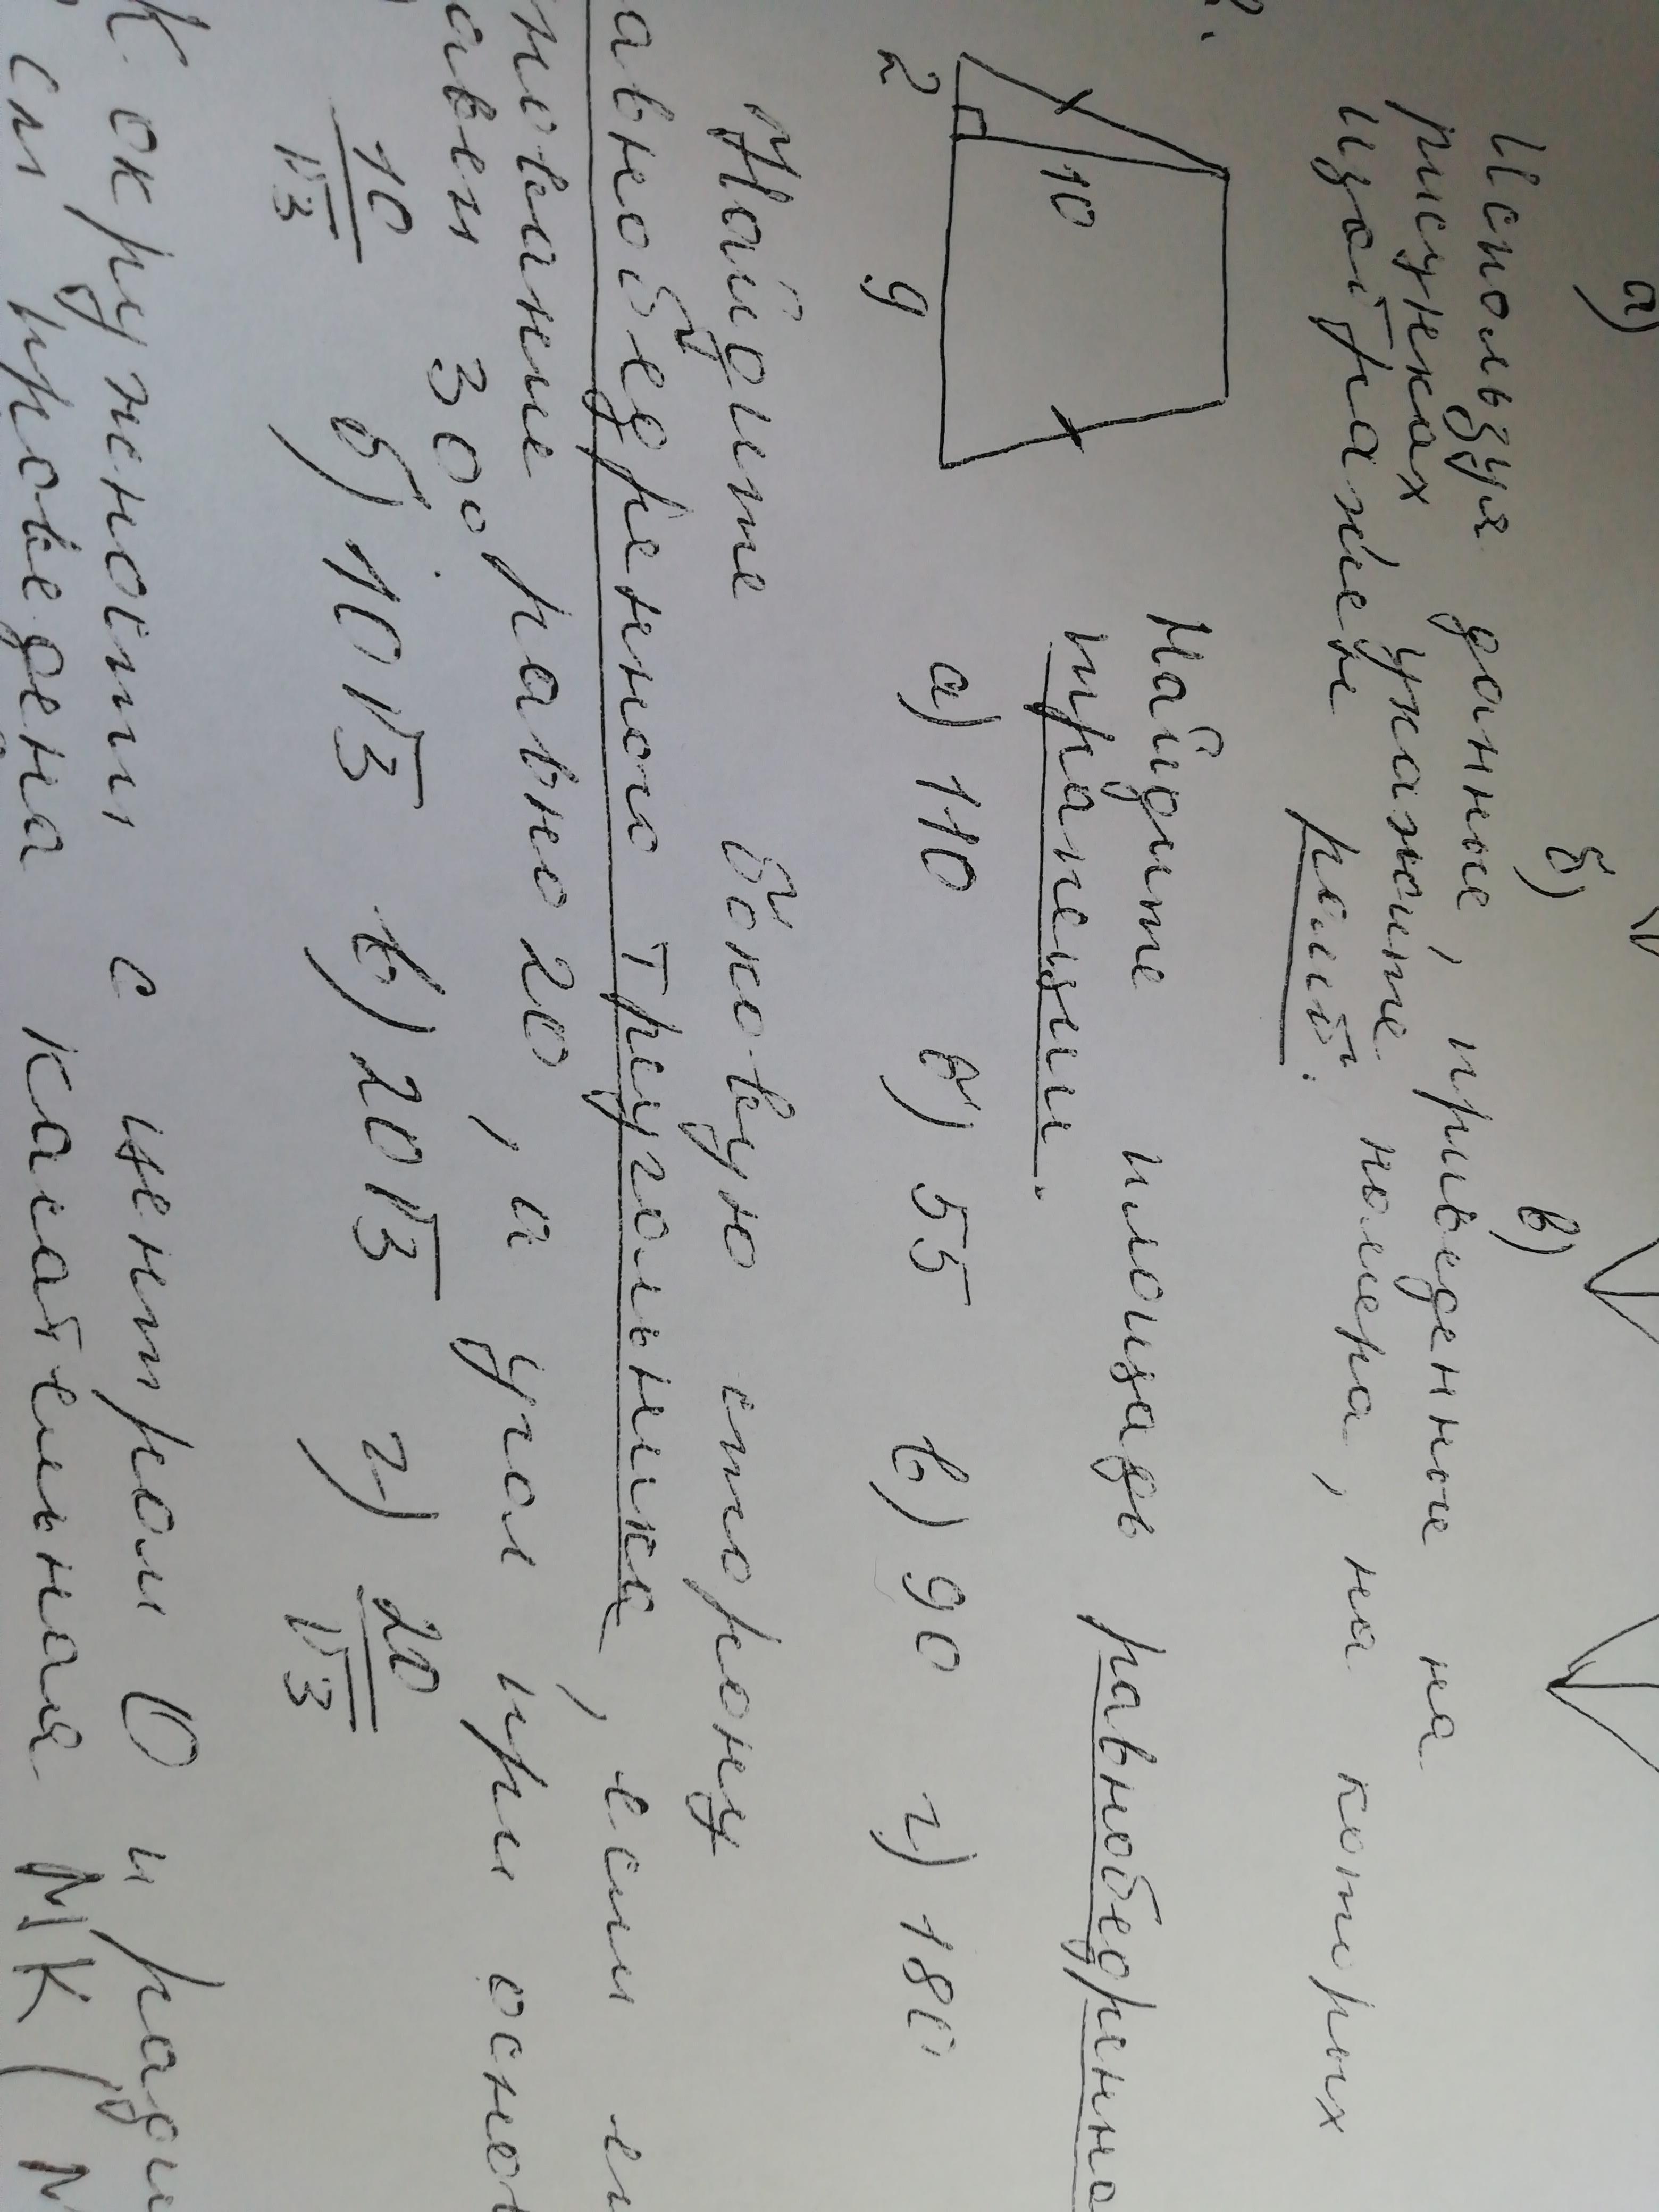 а) б) в)
Используя данные, приведенные на
рисунках укажите номера, на которых
изображен ромб.
2 10 9
Найдите площадь равнобедренно
трапеции.
а) 110 б) 55 в) 90 г) 180
Найдите боковую сторону
авнобедренного треугольника, если е
нование равно 20, а угол при основ
авен 30°.
10/√3 б) 10√3 в) 20√3 г) 20/√3
К окружности с центром О и ради
см проведена касательная МК (